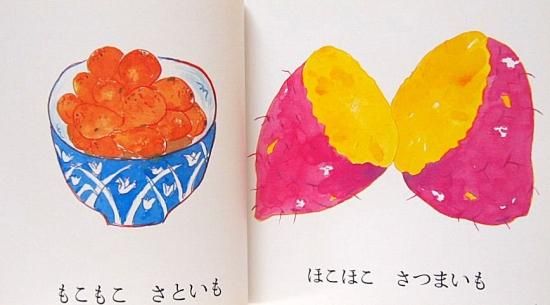 もこもこ　さといも
ほこほこ　さつまいも